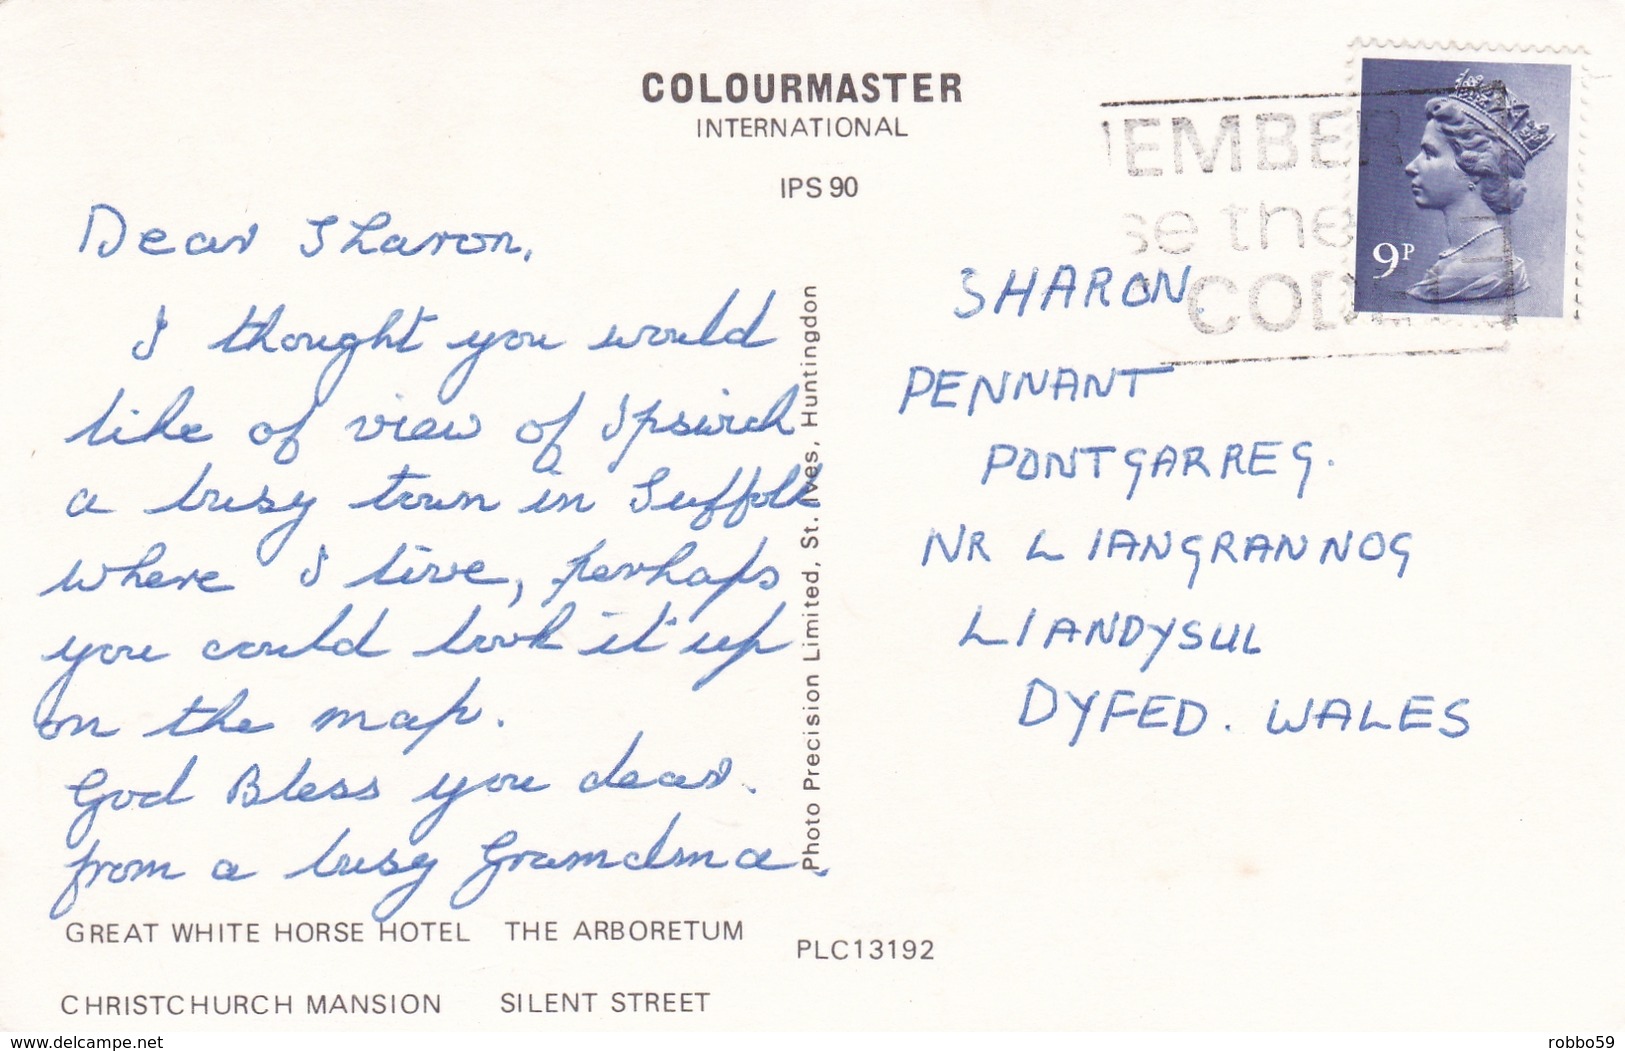 COLOURMASTER
INTERNATIONAL
IPS 90
Dear Sharon,
I thought you would
like of view of Ipswich
a busy town in Suffolk
where I live, perhaps
you could look it up
on the map.
God Bless you dear.
from a busy Grandma.
GREAT WHITE HORSE HOTEL THE ARBORETUM
CHRISTCHURCH MANSION SILENT STREET
Photo Precision Limited, St. Ives, Huntingdon
PLC13192
EMBER
se the
CODE
9P
SHARON
PENNANT
PONTGARREG.
NR LIANGRANNOG
LIANDYSUL
DYFED. WALES
delcampe.net
robbo59